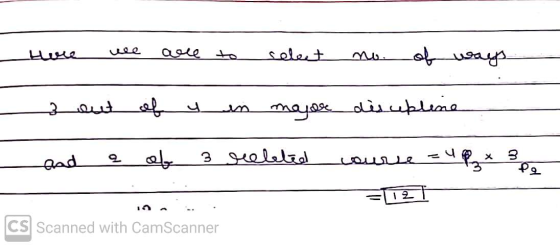 Here we are to select no. of ways
3 out of 4 in major discipline
and 2 of 3 related course = 4P3 × 3P2
= 12
CS Scanned with CamScanner